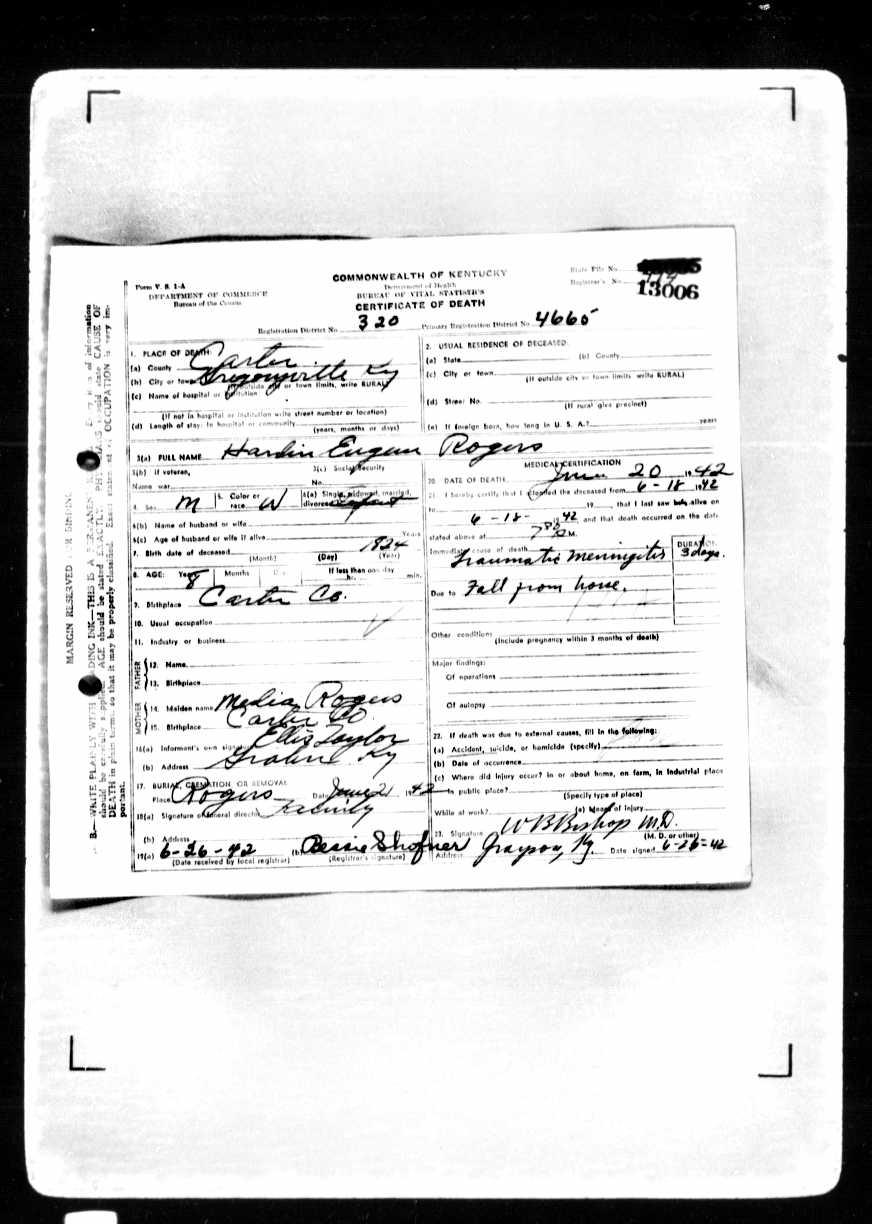 COMMONWEALTH OF KENTUCKY
Department of Health
BUREAU OF VITAL STATISTICS
CERTIFICATE OF DEATH
Form V. S. 1-A
DEPARTMENT OF COMMERCE
Bureau of the Census
State File No.
Registrar's No. 114
13006
Registration District No. 320
Primary Registration District No. 4665
1. PLACE OF DEATH:
(a) County Carter
(b) City or town Gregoryville Ky
(If outside city or town limits, write RURAL)
(c) Name of hospital or institution
(If not in hospital or institution write street number or location)
(d) Length of stay: In hospital or community
(years, months or days)
2. USUAL RESIDENCE OF DECEASED
(a) State (b) County
(c) City or town
(If outside city or town limits write RURAL)
(d) Street No.
(If rural give precinct)
(e) If foreign born, how long in U. S. A.? years
3(a) FULL NAME Hardin Eugene Rogers
3(b) If veteran,
Name war
3(c) Social Security
No.
4. Sex M
5. Color or
race W
6(a) Single, widowed, married,
divorced
6(b) Name of husband or wife
6(c) Age of husband or wife if alive Years
7. Birth date of deceased 1934
(Month) (Day) (Year)
8. AGE: Years 8 Months Days If less than one day
hr. min.
9. Birthplace Carter Co.
10. Usual occupation
11. Industry or business
FATHER
12. Name
13. Birthplace
MOTHER
14. Maiden name Media Rogers
15. Birthplace Carter Co
16(a) Informant's own signature Ellis Taylor
(b) Address Ky
17. BURIAL, CREMATION OR REMOVAL
Place Rogers Date June 21 1942
18(a) Signature of funeral director Family
(b) Address
19(a) 6-26-42 (b) Bessie Shofner
(Date received by local registrar) (Registrar's signature)
MEDICAL CERTIFICATION
20. DATE OF DEATH June 20, 1942
21. I hereby certify that I attended the deceased from 6-18 1942
to 19 , that I last saw alive on
6-18- 1942 and that death occurred on the date
stated above at M.
Immediate cause of death
Traumatic Meningitis
DURATION
3 days.
Due to Fall from horse.
Other conditions
(Include pregnancy within 3 months of death)
Major findings:
Of operations
Of autopsy
22. If death was due to external causes, fill in the following:
(a) Accident, suicide, or homicide (specify)
(b) Date of occurrence
(c) Where did injury occur? in or about home, on farm, in industrial place
in public place?
(Specify type of place)
While at work? (e) Means of injury
23. Signature W B Bishop M.D.
(M. D. or other)
Address Grayson, Ky. Date signed 6-26-42
MARGIN RESERVED FOR BINDING